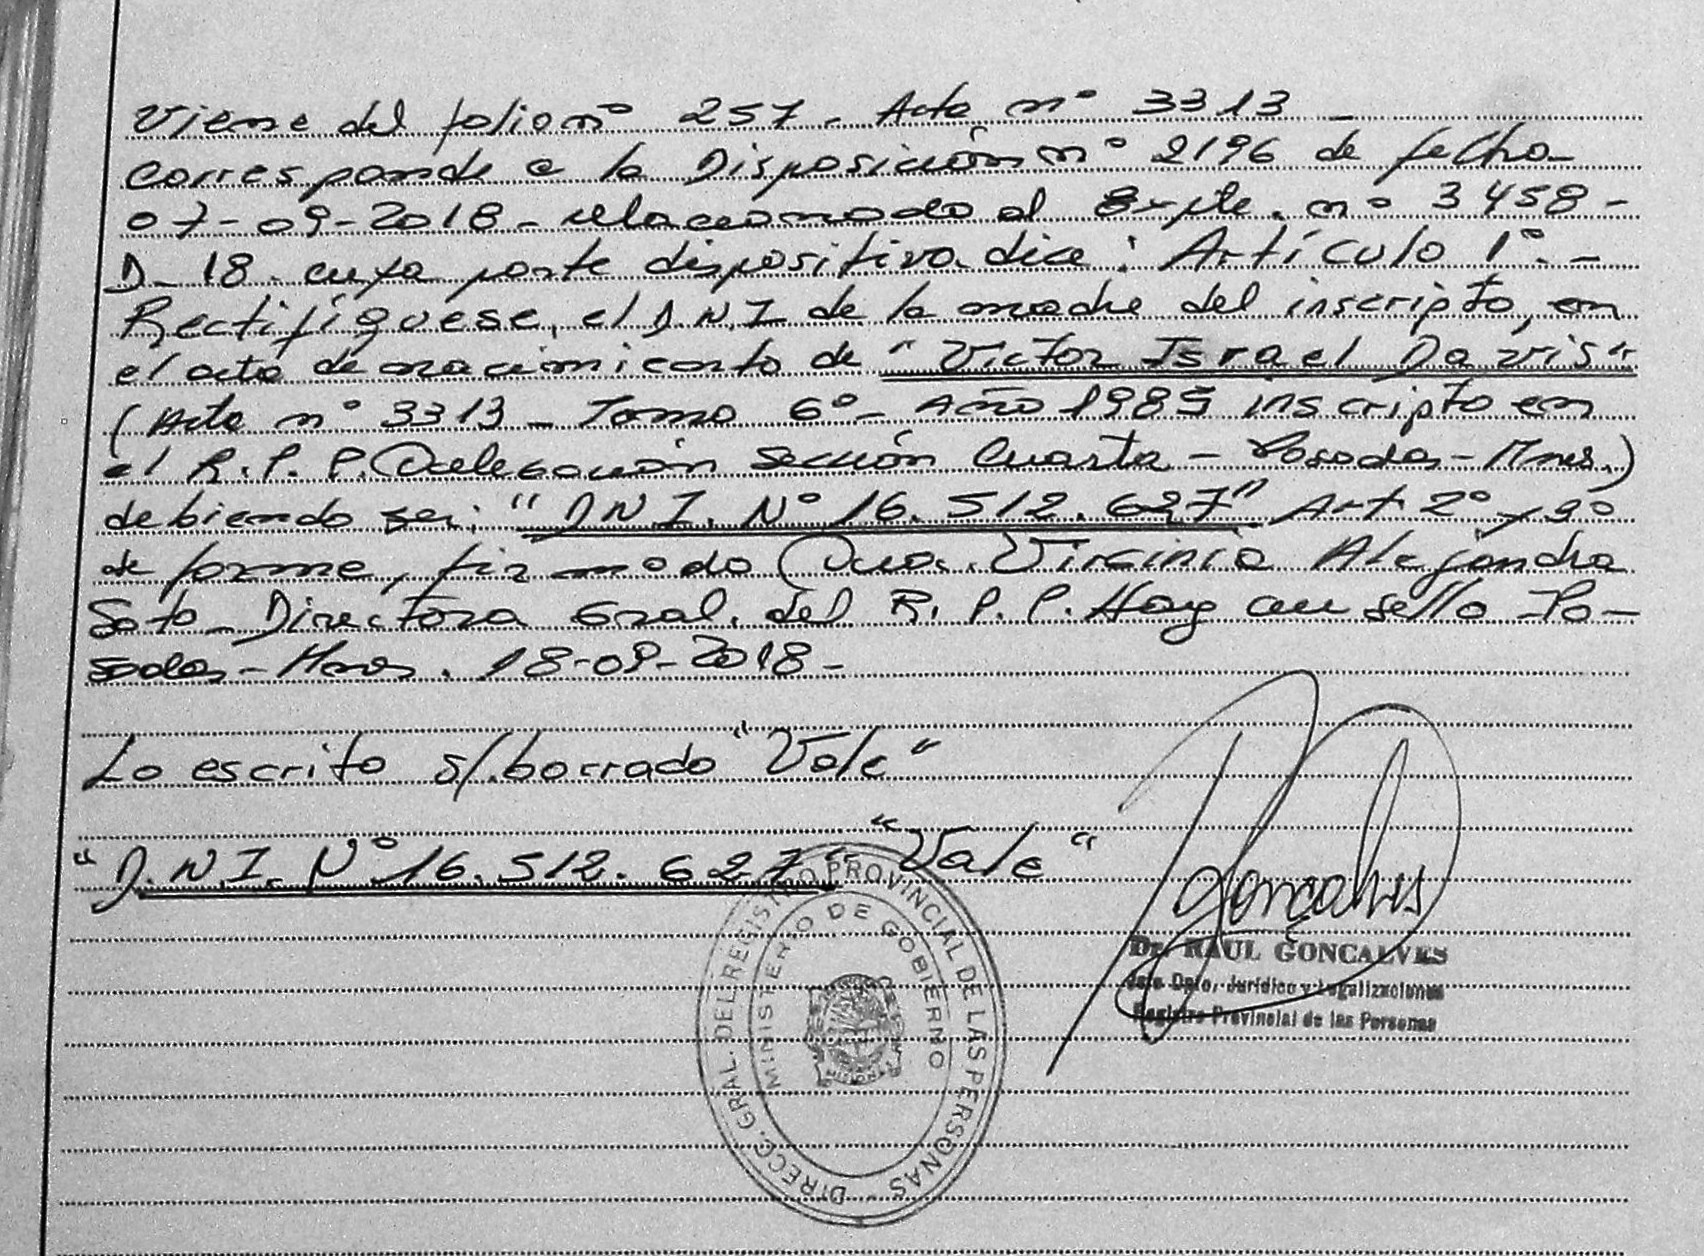 Viene del folio nº 257. Acta nº 3313 -
Corresponde a la Disposición nº 2196 de fecha
07-09-2018- relacionado al Expte. nº 3458-
D-18. cuya parte dispositiva dice: Artículo 1º.-
Rectifíquese, el D.N.I de la madre del inscripto, en
el acta de nacimiento de "Victor Israel Davis"
(Acta nº 3313 - Tomo 6º- Año 1985 inscripto en
el R.P.P. Delegación Sección Cuarta - Posadas - Mnes.)
debiendo ser: "D.N.I. Nº 16.512.627" Art 2º y 3º
de forma, firmado Virginia Alejandra
Soto - Directora Gral. del R.P.P. Hay un sello Po-
sadas - Mnes. 18-09-2018-
Lo escrito s/.borrado "Vale"
"D.N.I. Nº 16.512.627" "Vale"
Goncalves
Dr. RAUL GONCALVES
Jefe Dpto. Jurídico y Legalizaciones
Registro Provincial de las Personas
DIRECC. GRAL. DEL REGISTRO PROVINCIAL DE LAS PERSONAS
MINISTERIO DE GOBIERNO
MISIONES